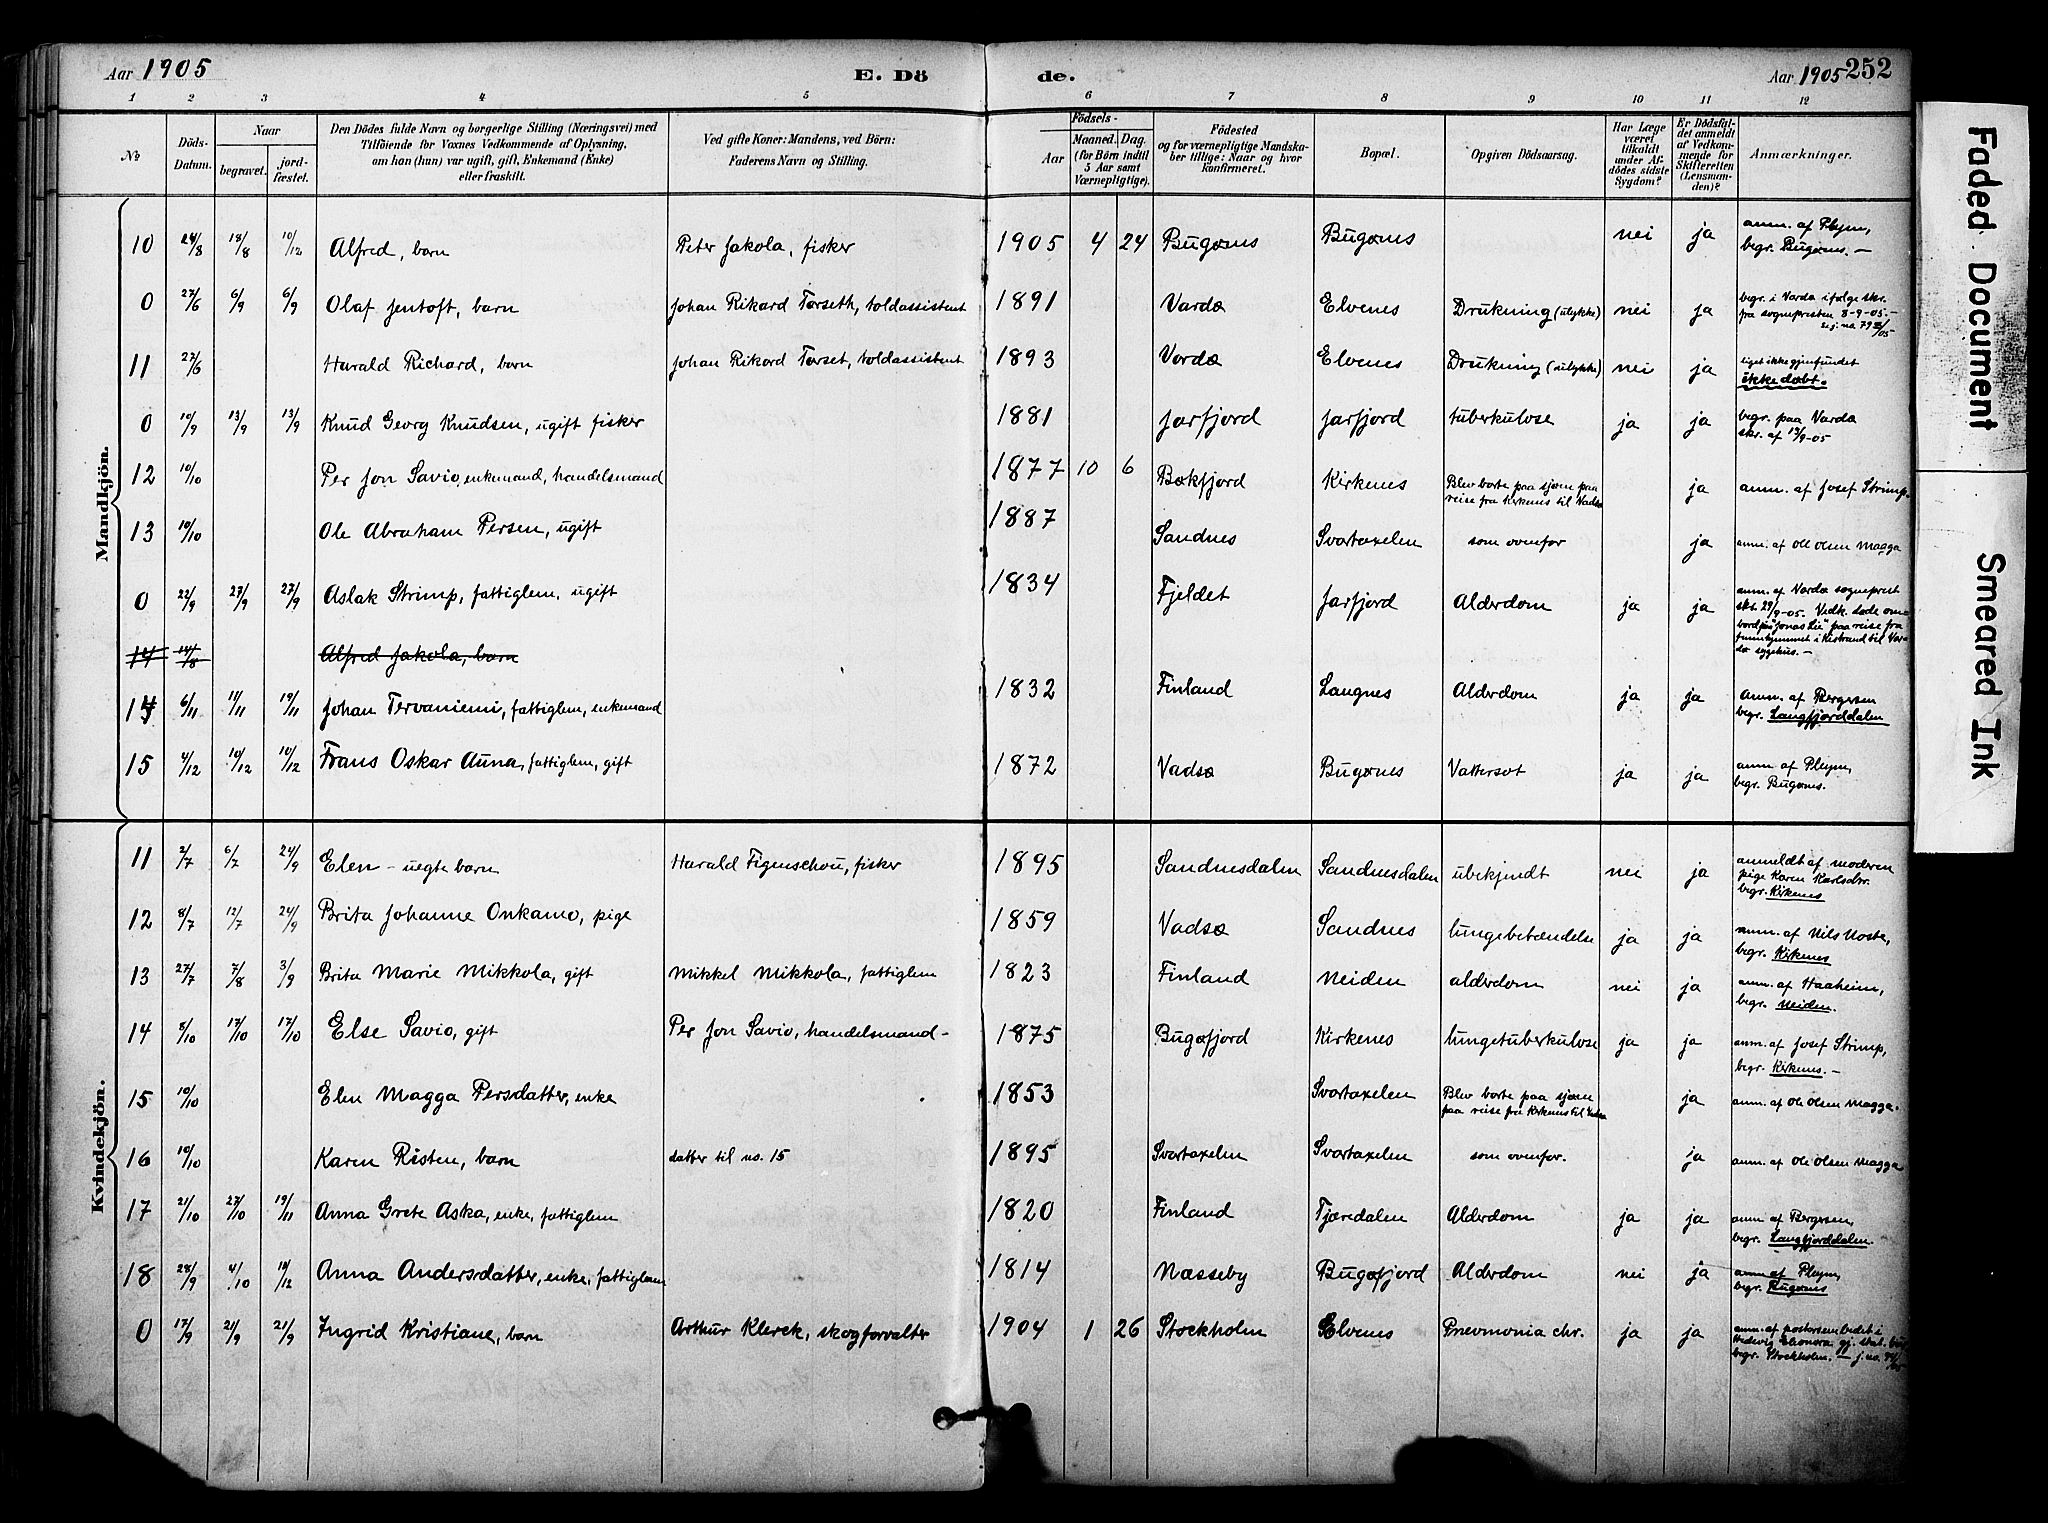 Aar 1905
E. Dö
de.
Aar 1905 252
1 2 3 4 5 6 7 8 9 10 11 12
No
Döds-Datum.
Naar
begravet.
jord-fæstet.
Den Dödes fulde Navn og borgerlige Stilling (Næringsvei) med
Tilföiende for Voxnes Vedkommende af Oplysning,
om han (hun) var ugift, gift, Enkemand (Enke)
eller fraskilt.
Ved gifte Koner: Mandens, ved Börn:
Faderens Navn og Stilling.
Födsels-
Aar
Maaned. Dag.
(for Börn indtil
5 Aar samt
Værnepligtige).
Födested
og for værnepligtige Mandska-
ber tillige: Naar og hvor
konfirmeret.
Bopæl.
Opgiven Dödsaarsag.
Har Læge
været
tilkaldt
under Af-
dödes sidste
Sygdom?
Er Dödsfal-
det anmeldt
af Vedkom-
mende for
Skifteretten
(Lensman-
den)?
Anmærkninger.
Mandkjön.
10 24/8 18/8 10/12 Alfred, barn Peter Jakola, fisker 1905 4 24 Bugønes Bugønes nei ja anm. af Pleym,
begr. Bugønes. —
0 27/6 6/9 6/9 Olaf Jentoft, barn Johan Rikard Torseth, toldassistent 1891 Vardø Elvenes Drukning (ulykke) nei ja begr. i Vardø ifølge skr.
fra sognepresten 8-9-05. —
11 27/6 Harald Richard, barn Johan Rikard Torset, toldassistent 1893 Vardø Elvenes Drukning (ulykke) nei ja liget ikke gjenfundet
ikke døbt.
0 10/9 13/9 13/9 Knud Georg Knudsen, ugift fisker 1881 Jarfjord Jarfjord tuberkulose ja ja begr. paa Vardø
skr. af 13/9-05
12 10/10 Per Jon Savio, enkemand, handelsmand 1877 10 6 Bøkfjord Kirkenes Blev borte paa sjøen paa
reise fra Kirkenes til Vadsø ja anm. af Josef Strimp.
13 10/10 Ole Abraham Persen, ugift 1887 Sandnes Svartaxelen som ovenfor ja anm. af Ole Olsen Magga
0 22/9 27/9 27/9 Aslak Strimp, fattiglem, ugift 1834 Fjeldet Jarfjord Alderdom ja ja anm. af Vardø sogneprest
skr. 29/9-05. Vedk. døde om-
bord paa "Jonas Lie" paa reise fra
i Kistrand til Var-
dø sygehus. —
14 14/8 Alfred Jakola, barn
14 6/11 11/11 19/11 Johan Tervaniemi, fattiglem, enkemand 1832 Finland Langnes Alderdom ja ja anm. af Bergersen
begr. Langfjorddalen
15 4/12 10/12 10/12 Frans Oskar Auna, fattiglem, gift 1872 Vadsø Bugønes Vattersot ja ja anm. af Pleym,
begr. Bugønes.
Kvindekjön.
11 2/7 6/7 24/9 Elen – uegte barn Harald Figenschou, fisker 1895 Sandnesdalen Sandnesdalen ubekjendt nei ja anmeldt af moderen
pige Karen Karlsdtr.
begr. Kirkenes
12 8/7 12/7 24/9 Brita Johanne Onkamo, pige 1859 Vadsø Sandnes lungebetændelse ja ja anm. af Nils Noste,
begr. Kirkenes
13 27/7 7/8 3/9 Brita Marie Mikkola, gift Mikkel Mikkola, fattiglem 1823 Finland Neiden alderdom nei ja anm. af Haaheim,
begr. Neiden.
14 8/10 17/10 17/10 Else Savio, gift Per Jon Savio, handelsmand – 1875 Bugøfjord Kirkenes lungetuberkulose ja ja anm. af Josef Strimp,
begr. Kirkenes. —
15 10/10 Elen Magga Persdatter, enke 1853 Svartaxelen Blev borte paa sjøen
paa reise fra Kirkenes til Vadsø ja anm. af Ole Olsen Magga.
16 10/10 Karen Risten, barn datter til no. 15 1895 Svartaxelen Svartaxelen som ovenfor. ja anm. af Ole Olsen Magga
17 21/10 27/10 19/11 Anna Grete Aska, enke, fattiglem 1820 Finland Tjæredalen Alderdom ja ja anm. af Bergersen,
begr. Langfjorddalen.
18 28/9 4/10 10/12 Anna Andersdatter, enke, fattiglem 1814 Næsseby Bugøfjord Alderdom nei ja anm. af Pleym,
begr. Bugønes
0 17/9 21/9 21/9 Ingrid Kristiane, barn Arthur Klerck, skogforvalter 1904 1 26 Stockholm Elvenes Pnevmonia chr. ja ja anm. af
Hedevig Eleonora
begr. Stockholm. —
Faded Document
Smeared Ink